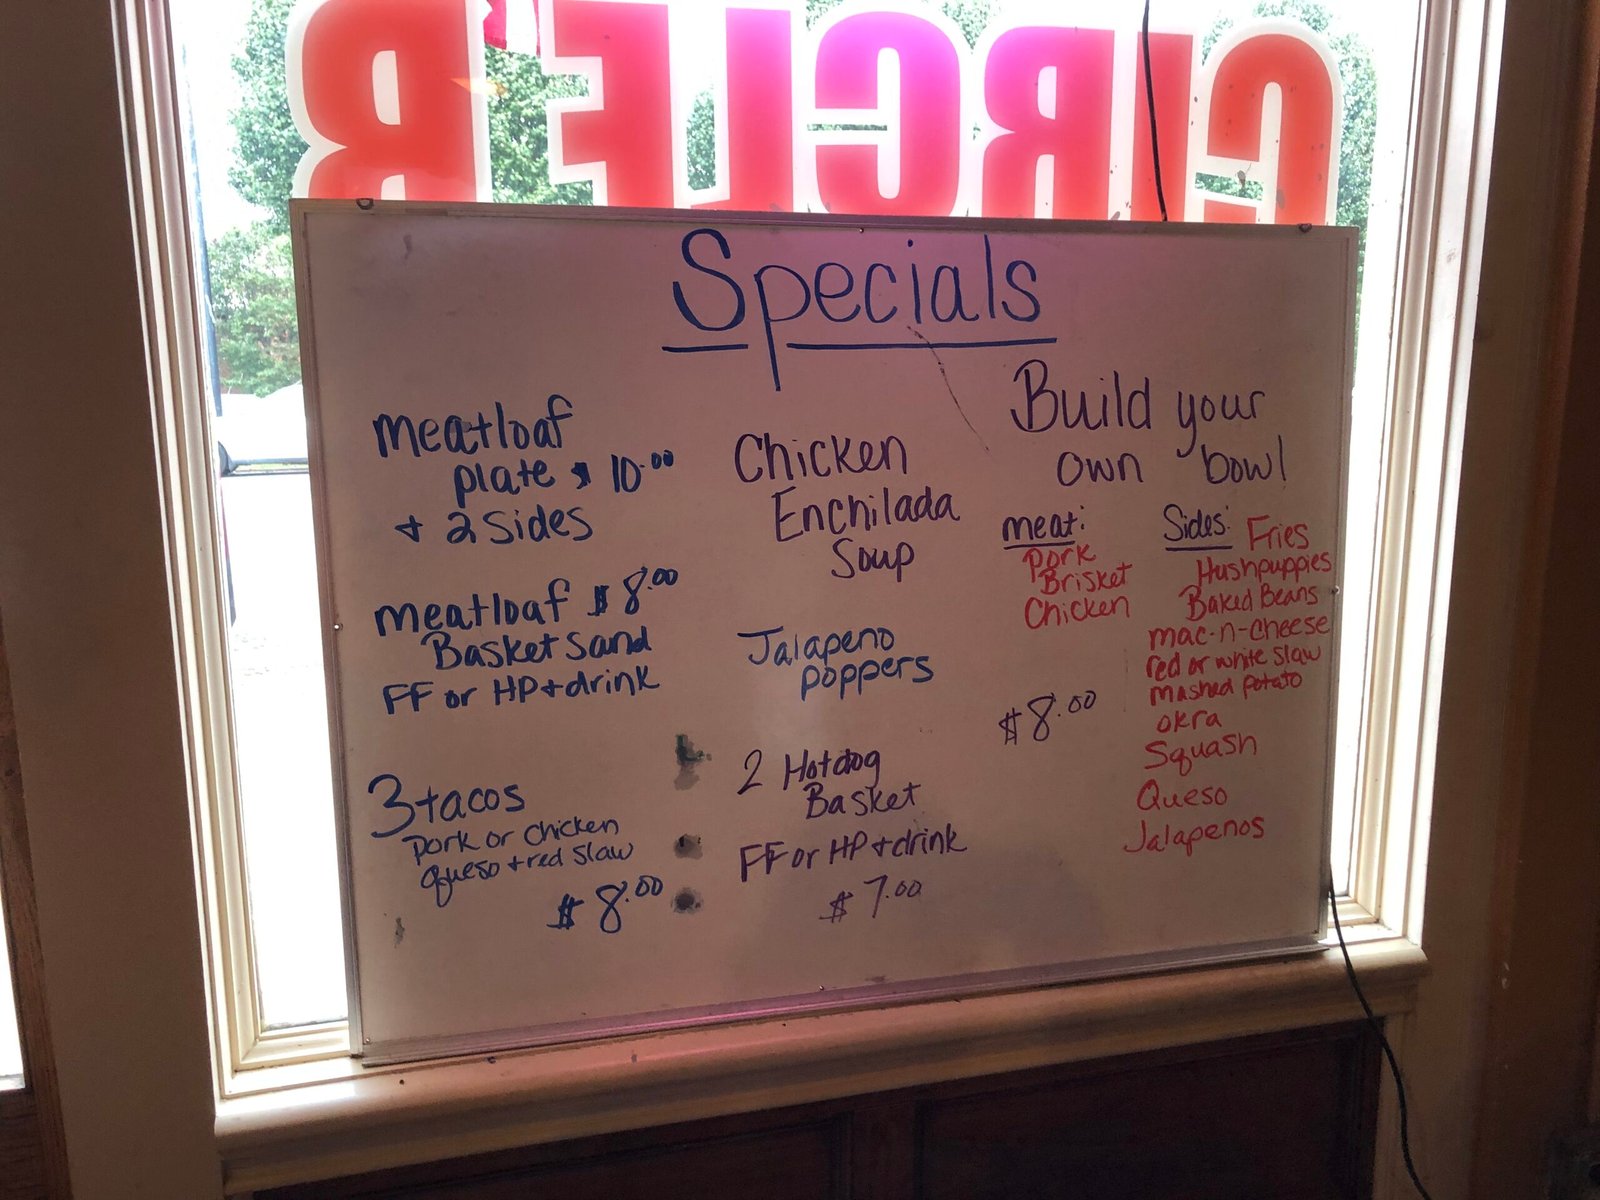 CIRCLE B
Specials
Meatloaf
plate $10.00
+ 2 Sides
Meatloaf $8.00
Basket Sand
FF or HP + drink
3 tacos
Pork or Chicken
queso + red slaw
$8.00
Chicken
Enchilada
Soup
Jalapeno
poppers
2 Hotdog
Basket
FF or HP + drink
$7.00
Build your
own bowl
meat:
Pork
Brisket
Chicken
$8.00
Sides: Fries
Hushpuppies
Baked Beans
mac-n-cheese
red or white slaw
mashed potato
okra
Squash
Queso
Jalapenos